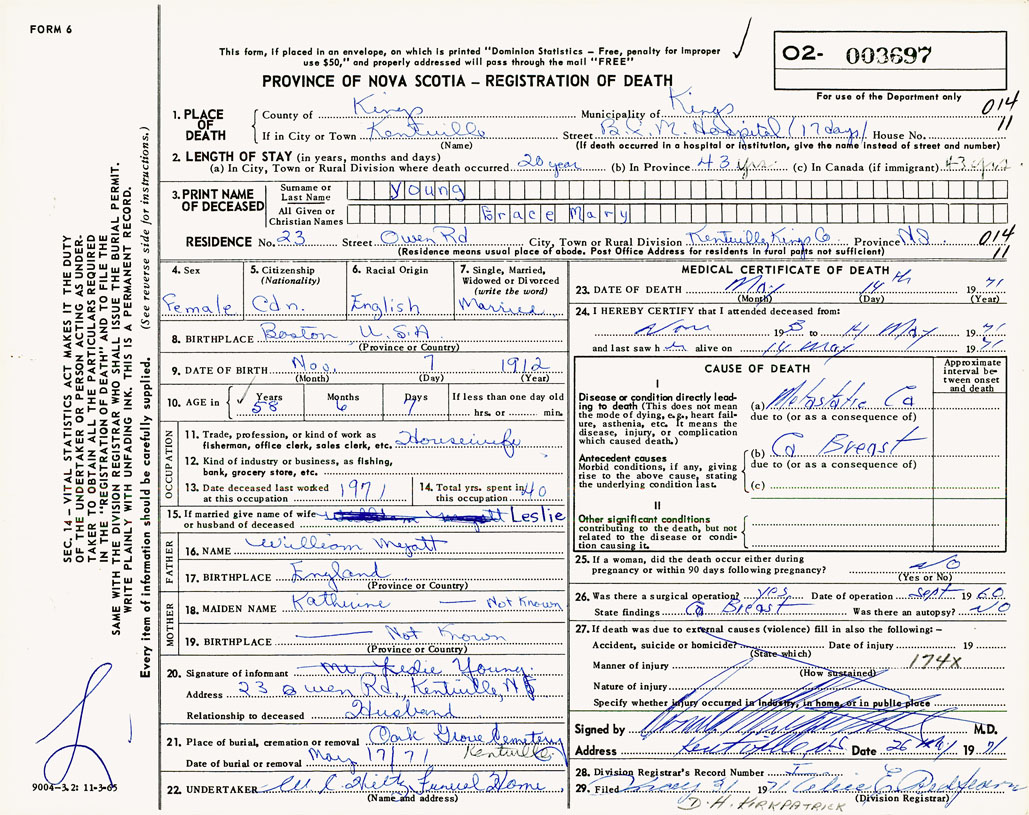 FORM 6
This form, if placed in an envelope, on which is printed "Dominion Statistics – Free, penalty for improper
use $50," and properly addressed will pass through the mail "FREE"
PROVINCE OF NOVA SCOTIA – REGISTRATION OF DEATH
O2- 003697
For use of the Department only
014
11
SEC. 14 – VITAL STATISTICS ACT MAKES IT THE DUTY
OF THE UNDERTAKER OR PERSON ACTING AS UNDER-
TAKER TO OBTAIN ALL THE PARTICULARS REQUIRED
IN THE "REGISTRATION OF DEATH" AND TO FILE THE
SAME WITH THE DIVISION REGISTRAR WHO SHALL ISSUE THE BURIAL PERMIT.
WRITE PLAINLY WITH UNFADING INK. THIS IS A PERMANENT RECORD.
Every item of information should be carefully supplied. (See reverse side for instructions.)
1. PLACE OF DEATH
County of Kings Municipality of Kings
If in City or Town Kentville Street B.&.M. Hospital (17 days) House No.
(Name) (If death occurred in a hospital or institution, give the name instead of street and number)
2. LENGTH OF STAY (in years, months and days)
(a) In City, Town or Rural Division where death occurred 20 year (b) In Province 43 yrs. (c) In Canada (if immigrant) 43 yrs.
3. PRINT NAME OF DECEASED
Surname or Last Name Young
All Given or Christian Names Grace Mary
RESIDENCE No. 23 Street Owen Rd City, Town or Rural Division Kentville, Kings Co Province N.S. 014
11
(Residence means usual place of abode. Post Office Address for residents in rural parts not sufficient)
4. Sex
Female
5. Citizenship
(Nationality)
Cdn.
6. Racial Origin
English
7. Single, Married,
Widowed or Divorced
(write the word)
Married
8. BIRTHPLACE Boston U.S.A
(Province or Country)
9. DATE OF BIRTH Nov. 7 1912
(Month) (Day) (Year)
10. AGE in Years 58 Months 6 Days 7 If less than one day old
hrs. or min.
OCCUPATION
11. Trade, profession, or kind of work as
fisherman, office clerk, sales clerk, etc. Housewife
12. Kind of industry or business, as fishing,
bank, grocery store, etc.
13. Date deceased last worked
at this occupation 1971
14. Total yrs. spent in
this occupation 40
15. If married give name of wife
or husband of deceased Leslie
FATHER
16. NAME William Myatt
17. BIRTHPLACE England
(Province or Country)
MOTHER
18. MAIDEN NAME Katherine — Not Known
19. BIRTHPLACE — Not Known
(Province or Country)
20. Signature of informant Mr Leslie Young.
Address 23 Owen Rd., Kentville, NS
Relationship to deceased Husband
21. Place of burial, cremation or removal Oak Grove Cemetery
Kentville
Date of burial or removal May 17/71
22. UNDERTAKER Funeral Home
(Name and address)
MEDICAL CERTIFICATE OF DEATH
23. DATE OF DEATH May 14th 1971
(Month) (Day) (Year)
24. I HEREBY CERTIFY that I attended deceased from:
Nov 19 to 14 May 1971
and last saw her alive on 14 May 1971
CAUSE OF DEATH
Approximate interval be-tween onset and death
I
Disease or condition directly lead-
ing to death (This does not
mean the mode of dying, e.g., heart fail-
ure, asthenia, etc. It means the
disease, injury, or complication
which caused death.)
(a) Metastatic Ca
due to (or as a consequence of)
Antecedent causes
Morbid conditions, if any, giving
rise to the above cause, stating
the underlying condition last.
(b) Ca Breast
due to (or as a consequence of)
(c)
II
Other significant conditions
contributing to the death, but not
related to the disease or condi-
tion causing it.
25. If a woman, did the death occur either during
pregnancy or within 90 days following pregnancy? NO
(Yes or No)
26. Was there a surgical operation? yes Date of operation Sept 1960
State findings Ca Breast Was there an autopsy? NO
27. If death was due to external causes (violence) fill in also the following: –
Accident, suicide or homicide? Date of injury 19
(State which)
Manner of injury 174X
(How sustained)
Nature of injury
Specify whether injury occurred in industry, in home, or in public place
Signed by M.D.
Address Kentville NS Date 26 May 1971
28. Division Registrar's Record Number
29. Filed 1971
(Division Registrar)
D. H. KIRKPATRICK
9004-3.2: 11-3-65